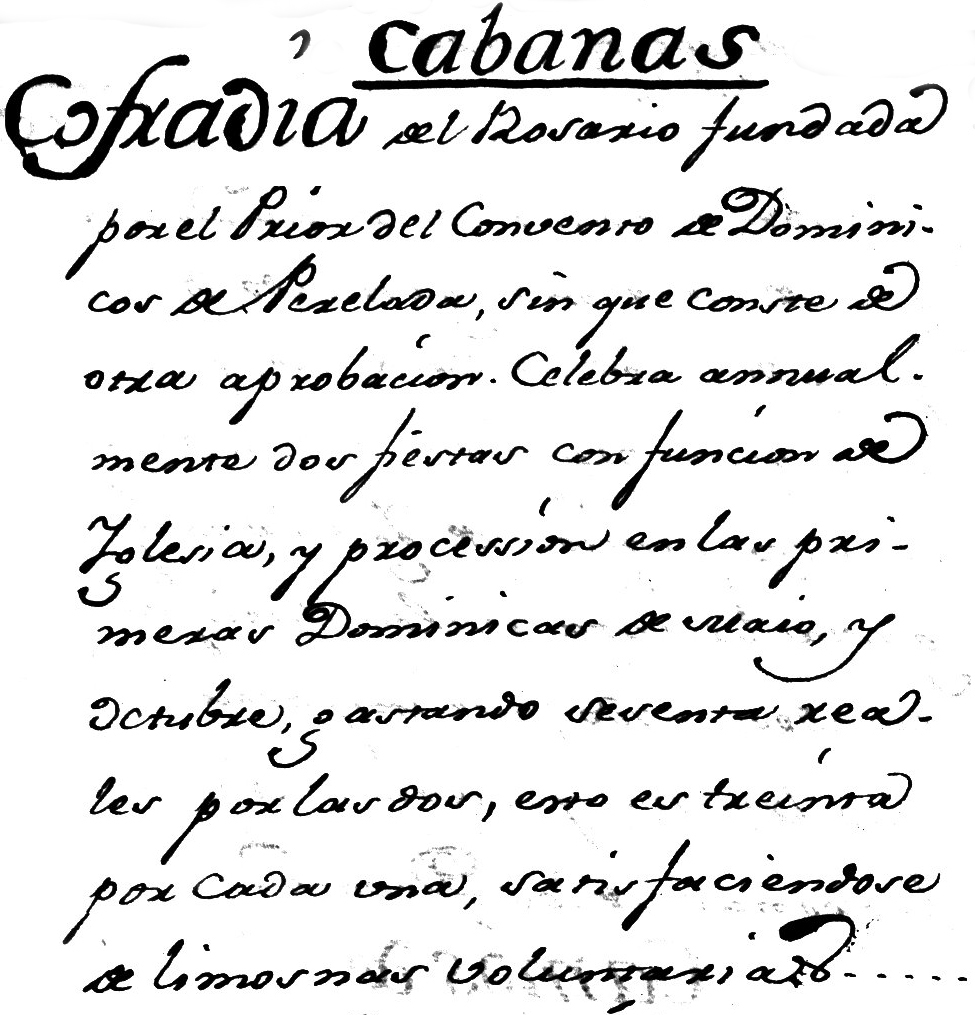 Cabanas
Cofradia del Rosario fundada
por el Prior del Convento de Domini-
cos de Perelada, sin que conste de
otra aprobación. Celebra annual-
mente dos fiestas con función de
Yglesia, y processión en las pri-
meras Dominicas de Maio, y
Octubre, gastando sesenta rea-
les por las dos, esto es treinta
por cada una, satisfaciendose
de limosnas voluntarias-----